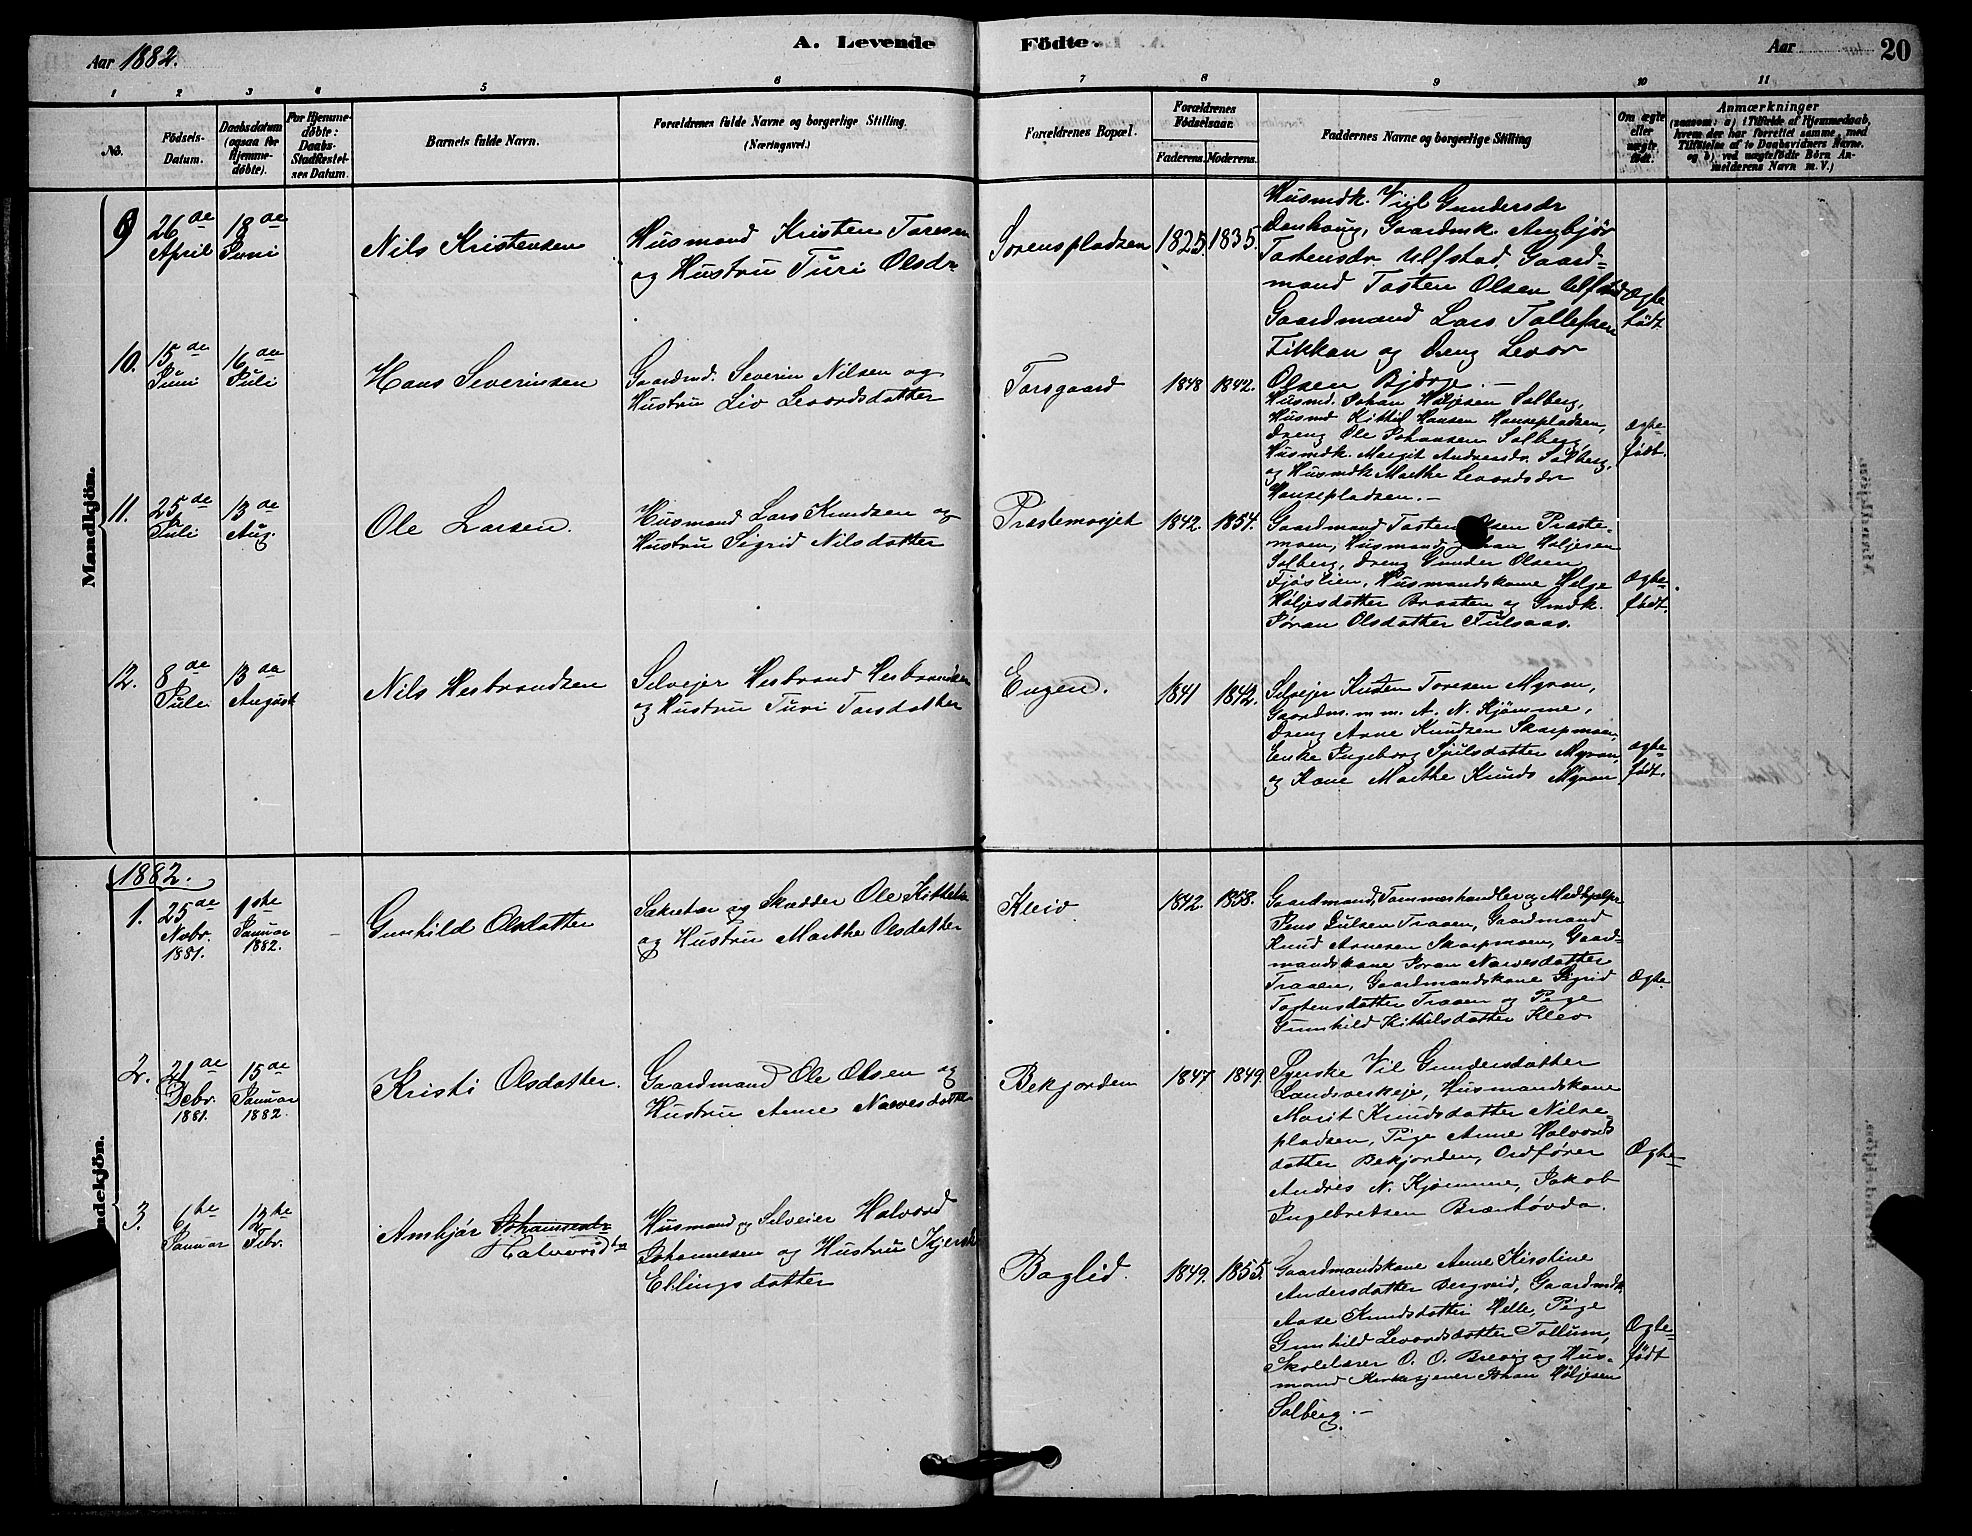 Aar 1882.
A. Levende Födte.
Aar
20
1 2 3 4 5 6 7 8 9 10 11
No.
Födsels-Datum.
Daabsdatum (ogsaa for Hjemme-döbte).
For Hjemme-döbte: Daabs-Stadfæstel-ses Datum.
Barnets fulde Navn.
Forældrenes fulde Navne og borgerlige Stilling. (Næringsvei.)
Forældrenes Bopæl.
Forældrenes Födselsaar.
Faderens. Moderens.
Faddernes Navne og borgerlige Stilling
Om ægte eller uægte födt.
Anmærkninger
(saasom: a) i Tilfælde af Hjemmedaab,
hvem der har forrettet samme, med
Tilföielse af to Daabsvidners Navne,
og b) ved uægtefödte Börn An-
melderens Navn m. V.)
Mandkjön.
9 26de April
18de Juni
Nils Kristensen
Husmand Kristen Toresen
og Hustru Turi Olsdr
Sorenspladsen
1825 1835.
Husmdk. Viil Gundersdr
Gaardmk. Ambjör
Tostensdr. Ulfstad Gaard=
mand Tosten Olsen Ulfstad
Gaardmand Lars Tollefsen
Fikkan og Dreng Levor
Olsen Bjørge. –
Ægte
födt
10. 15de Juni
16de Juli
Hans Severinsen
Gaardmd. Severin Nilsen og
Hustru Liv Levordsdatter
Torsgaard
1848 1842.
Husmd. Johan Høljesen Solberg,
Husmd Kittil Hansen Hansepladsen,
Dreng Ole Johansen Solberg,
Husmdk. Margit Andersdr. Solberg,
og Husmdk Marthe Levordsdr
Hansepladsen. –
ægte=
födt.
11. 25de Juli
13de Aug.
Ole Larsen.
Husmand Lars Knudsen og
Hustru Sigrid Nilsdatter
Præstemoejet
1842. 1854.
Gaardmand Tosten Olsen Præste-
moen, Husmand Johan Høljesen
Solberg, Dreng Gunder Olsen
Fjøslien, Husmandskone Helge
Høljesdatter Braaten og Gmdk.
Jøran Olsdatter Fulsaas.
Ægte=
födt.
12. 8de Juli
13de August
Nils Herbrandsen
Selvejer Herbrand Herbrandsen
og Hustru Turi Torsdatter
Engen.
1841 1842.
Selvejer Kristen Toresen Myran,
Gaardm. m m. A. N. Kjømme,
Dreng Arne Knudsen Skarpmoen,
Enke Ingeborg Spilsdatter Myran,
og Kone Marthe Knuds Myran
ægte=
födt.
1882.
1. 25de Novbr. 1881.
1ste Januar 1882.
Gunhild Olsdatter
og Skrædder Ole Kittelsen
og Hustru Marthe Olsdatter
Kleiv.
1842. 1858.
Gaardmand, Tømmerhandler og Medhjælper
Jens Gulsen Traaen, Gaardmand
Knud Arnesen Skarpmoen, Gaard=
mandskone Jøran Narvesdatter
Traaen, Gaardmandskone Sigrid
Tostensdatter Traaen og Pige
Gunhild Kittilsdatter Kleiv
Ægte
2. 21de Debr. 1881.
15de Januar 1882.
Kristi Olsdatter.
Gaardmand Ole Olsen og
Hustru Anne Narvesdatter
Bekjorden
1847 1849.
Vil Gundersdatter
Landsverkeje, Husmandskone
Marit Knudsdatter Nilse
pladsen, Pige Anne Halvords
datter Bekjorden, Ordfører
Andres N. Kjømme, Jakob
Ingebretsen Brærhøvda.
Ægte=
3. 6te Januar
12te Febr.
Ambjør Johannesdr
Halvordsdtr
Husmand og Selveier Halvord
Johannesen og Hustru Kjersti
Ellingsdatter
Baglid.
1849. 1855.
Gaardmandskone Anne Kirstine
Andersdatter Bergrud, Gaardmdk.
Aase Knudsdatter Helle, Pige
Gunhild Levordsdatter Tollum,
Skolelærer O. O. Brevig og Hus=
mand Kirketjener Johan Høljesen
Solberg. –
Ægte=
födt
ndekjön.